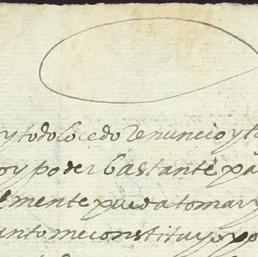 y todo lo cedo Renuncio y t
oy poder bastante pa
lmente pueda tomar y
anto me constituyo po